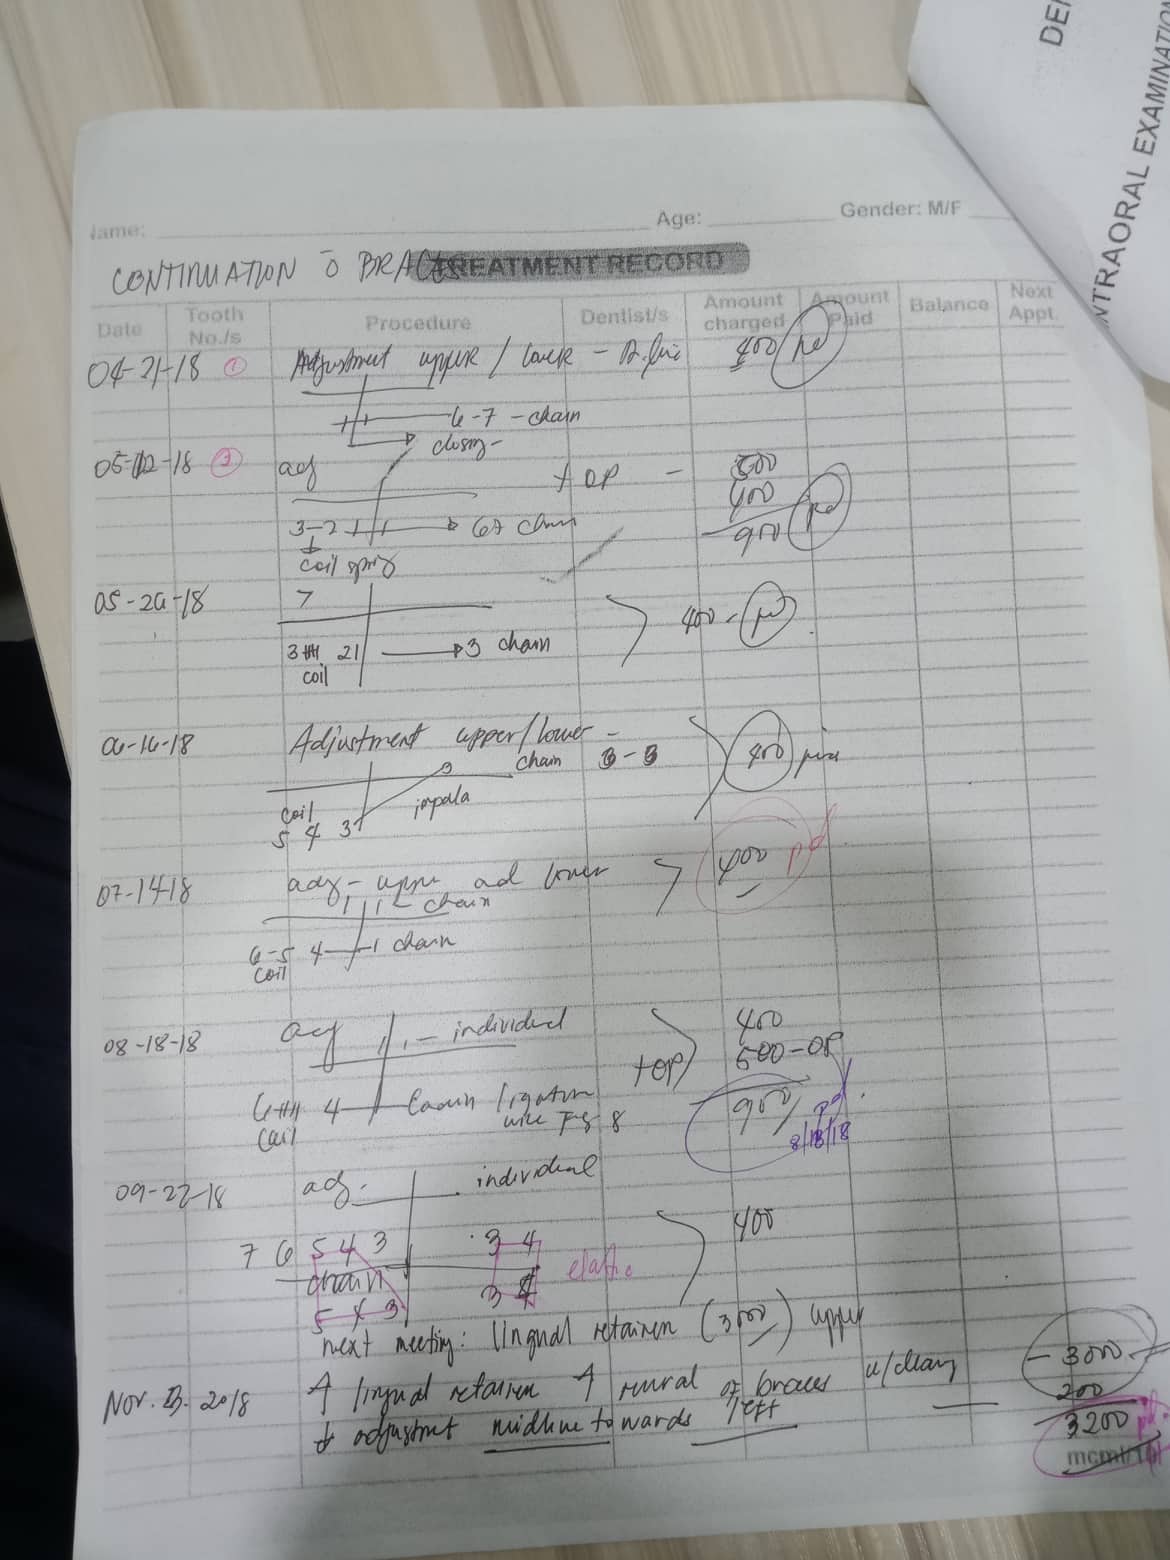 DE
NTRAORAL EXAMINATION
Name: Age: Gender: M/F
CONTINUATION ō BRACES TREATMENT RECORD
Date Tooth No./s Procedure Dentist/s Amount charged Amount Paid Balance Next Appt.
04-21-18 ① Adjustment upper / lower - 400 pd
6-7 - chain
closing -
05-12-18 ② adj + OP - 500
400
3-2 67 chain 900 pd
coil spring
05-26-18 7
400 - pd
3 21 3 chain
coil
06-16-18 Adjustment upper/lower -
chain 3-3 400 paid
coil
5 4 3 impala
07-14-18 adj - upper ad lower 400 pd
1 1 chain
6-5 4 1 chain
coil
08-18-18 adj - individual 400
+OP 500-OP
6 4 ligation 900 pd
coil wire Fig 8 8/18/18
09-22-18 adj. individual
400
7 6 5 4 3 3 4
chain elastic
5 4 3 3 4
next meeting: lingual retainer (3000) upper
Nov. 2018 ↑ lingual retainer ↑ removal of braces w/ - 3000
↓ adjustment midline towards left 200
3200 pd.